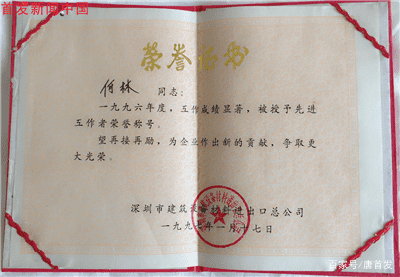 首发新闻中国
荣誉证书
何林 同志:
一九九六年度,工作成绩显著,被授予先进
工作者荣誉称号。
望再接再励,为企业作出新的贡献,争取更
大光荣。
深圳市建筑设备材料进出口总公司
一九九七年一月十七日
百家号/唐首发